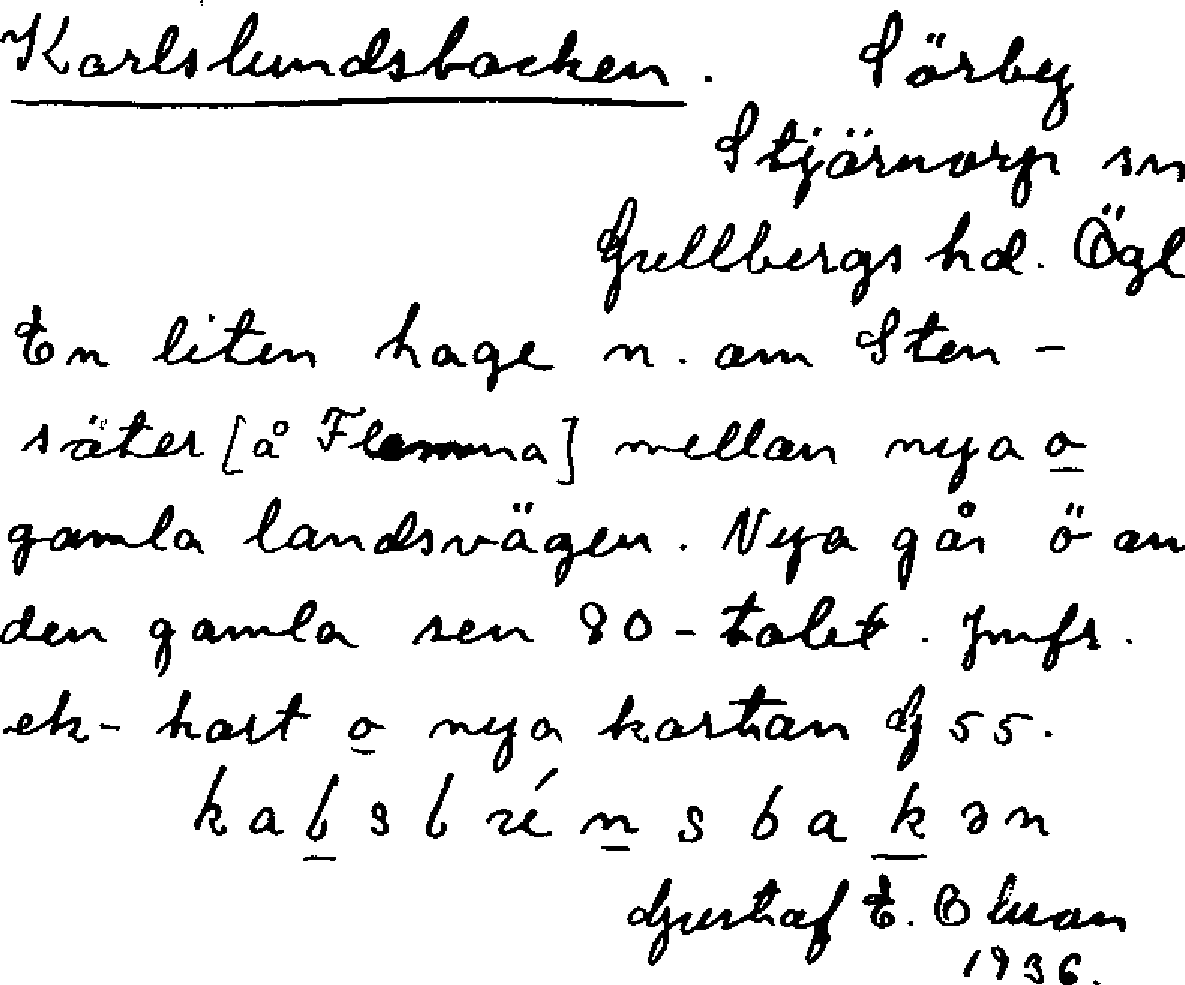 Karlslundsbacken. Sörby
Stjärnorp sn
Gullbergs hd. Ögl
En liten hage n. om Sten-
säter [å Flemma] mellan nya o
gamla landsvägen. Nya går ö om
den gamla sen 80-talet. Jmfr.
ek-kart o nya kartan G 55.
Gustaf E. Olson
1936.